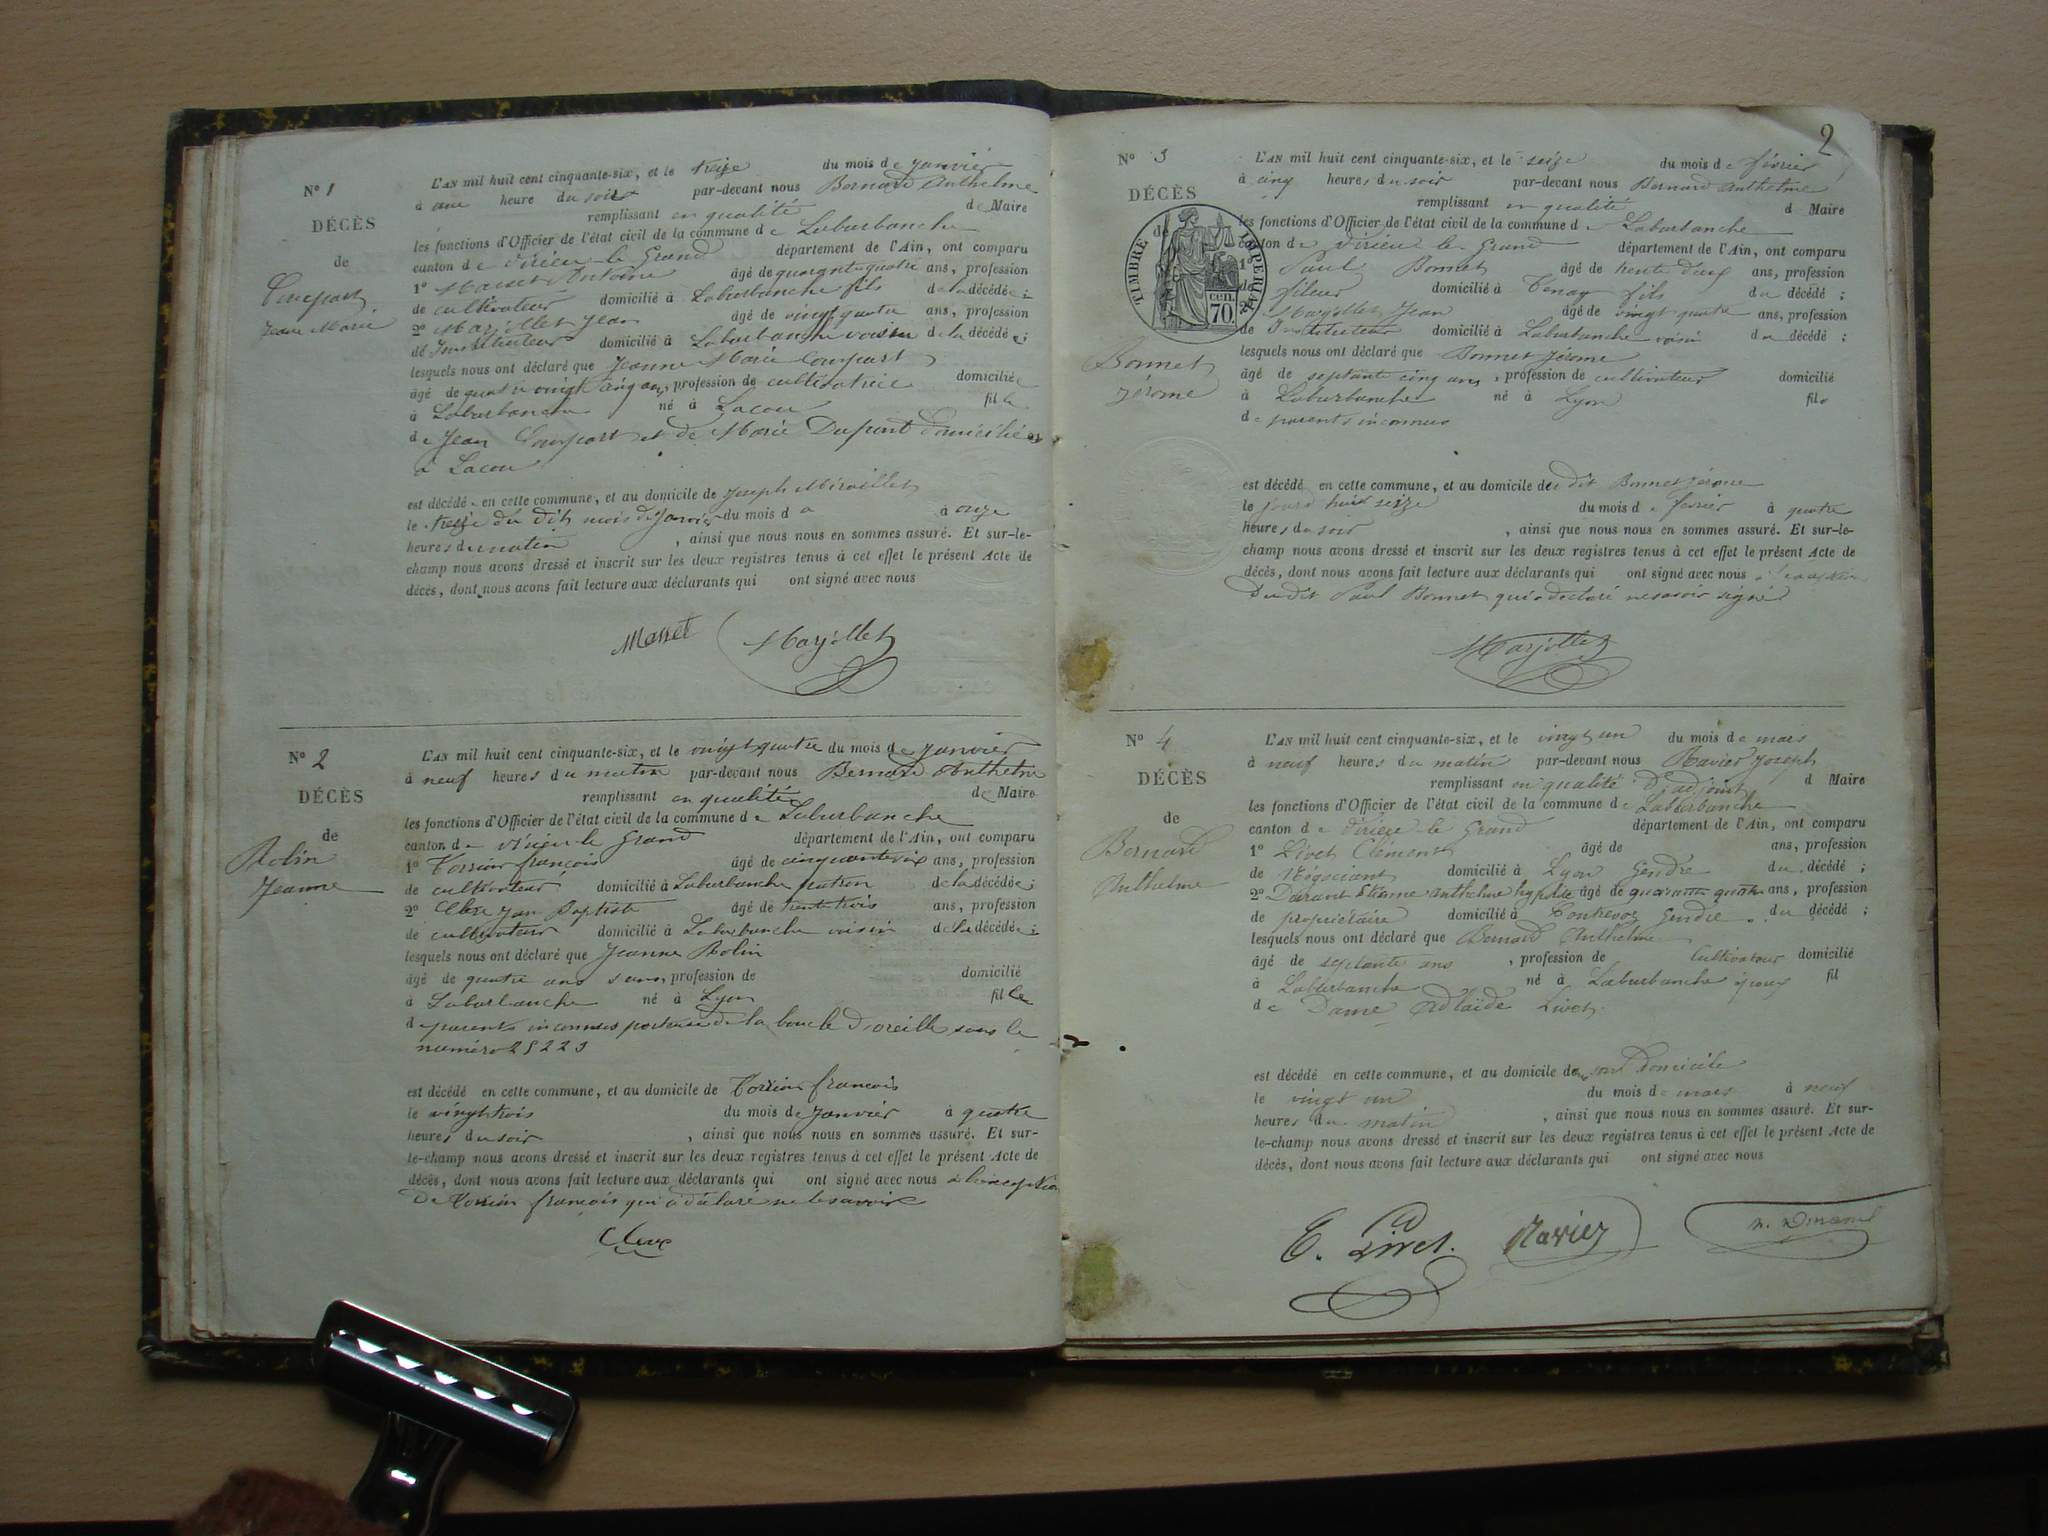 N° 1
DÉCÈS
de
Jeane Marie
L'AN mil huit cent cinquante-six, et le treize du mois de janvier
à une heure du soir par-devant nous Bernard Anthelme
remplissant en qualité de Maire
les fonctions d'Officier de l'état civil de la commune de Laburbanche
canton de Virieu-le Grand département de l'Ain, ont comparu
1° Masset Antoine âgé de quarante quatre ans, profession
de cultivateur domicilié à Laburbanche fils de la décédée;
2° Marjollet Jean âgé de vingt quatre ans, profession
de Instituteur domicilié à Laburbanche voisin de la décédée;
lesquels nous ont déclaré que Jeanne Marie
âgé de quatre vingt cinq ans, profession de cultivatrice domiciliée
à Laburbanche né à Lacou fille
de Jean et de Marie Dupont domiciliés
à Lacou
est décédé en cette commune, et au domicile de Joseph Miraillet
le treize du dit mois de Janvier du mois d à onze
heures du matin, ainsi que nous nous en sommes assuré. Et sur-le-
champ nous avons dressé et inscrit sur les deux registres tenus à cet effet le présent Acte de
décès, dont nous avons fait lecture aux déclarants qui ont signé avec nous
Masset Marjollet
N° 2
DÉCÈS
de
Rolin
Jeanne
L'AN mil huit cent cinquante-six, et le vingt quatre du mois de janvier
à neuf heures du matin par-devant nous Bernard Anthelme
remplissant en qualité de Maire
les fonctions d'Officier de l'état civil de la commune de Laburbanche
canton de Virieu-le Grand département de l'Ain, ont comparu
1° françois âgé de cinquante six ans, profession
de cultivateur domicilié à Laburbanche patron de la décédée;
2° Clerc Jean Baptiste âgé de trente trois ans, profession
de cultivateur domicilié à Laburbanche voisin de la décédée;
lesquels nous ont déclaré que Jeanne Rolin
âgé de quatre ans, profession de domicilié
à Laburbanche né à Lyon fille
de parents inconnus porteuse de la boucle d'oreille sous le
numéro 25223
est décédé en cette commune, et au domicile de françois
le vingt trois du mois de janvier à quatre
heures du soir, ainsi que nous nous en sommes assuré. Et sur-
le-champ nous avons dressé et inscrit sur les deux registres tenus à cet effet le présent Acte de
décès, dont nous avons fait lecture aux déclarants qui ont signé avec nous à l'exception
de françois qui a déclaré ne le savoir
Clerc
2
N° 3
DÉCÈS
de
TIMBRE IMPERIAL
70 cen.
Bonnet
Jérome
L'AN mil huit cent cinquante-six, et le seize du mois de février
à cinq heures du soir par-devant nous Bernard Anthelme
remplissant en qualité d Maire
les fonctions d'Officier de l'état civil de la commune de Laburbanche
canton de Virieu le Grand département de l'Ain, ont comparu
1° Paul Bonnet âgé de trente ans, profession
de fileur domicilié à Tenay fils du décédé;
2° Marjollet Jean âgé de vingt quatre ans, profession
de Instituteur domicilié à Laburbanche voisin du décédé;
lesquels nous ont déclaré que Bonnet Jérome
âgé de septante cinq ans, profession de cultivateur domicilié
à Laburbanche né à Lyon fils
de parents inconnus
est décédé en cette commune, et au domicile de dit Bonnet Jérome
le jourd'huit seize du mois de fevrier à quatre
heures du soir, ainsi que nous nous en sommes assuré. Et sur-le-
champ nous avons dressé et inscrit sur les deux registres tenus à cet effet le présent Acte de
décès, dont nous avons fait lecture aux déclarants qui ont signé avec nous à l'exception
Du dit Paul Bonnet qui a déclaré ne savoir signé
Marjollet
N° 4
DÉCÈS
de
Bernard
Anthelme
L'AN mil huit cent cinquante-six, et le vingt un du mois de mars
à neuf heures du matin par-devant nous Ravier Joseph
remplissant en qualité D'adjoint d Maire
les fonctions d'Officier de l'état civil de la commune de Laburbanche
canton de Virieu-le Grand département de l'Ain, ont comparu
1° Livet Clément âgé de ans, profession
de Négociant domicilié à Lyon Gendre du décédé;
2° Etienne Anthelme hypolite âgé de quarante quatre ans, profession
de propriétaire domicilié à Contrevoz Gendre du décédé;
lesquels nous ont déclaré que Bernard Anthelme
âgé de septante ans, profession de Cultivateur domicilié
à Laburbanche né à Laburbanche époux fil
de Dame Adlaïde Livet
est décédé en cette commune, et au domicile de son Domicile
le vingt un du mois de mars à neuf
heures du matin, ainsi que nous nous en sommes assuré. Et sur-
le-champ nous avons dressé et inscrit sur les deux registres tenus à cet effet le présent Acte de
décès, dont nous avons fait lecture aux déclarants qui ont signé avec nous
C. Livet. Ravier